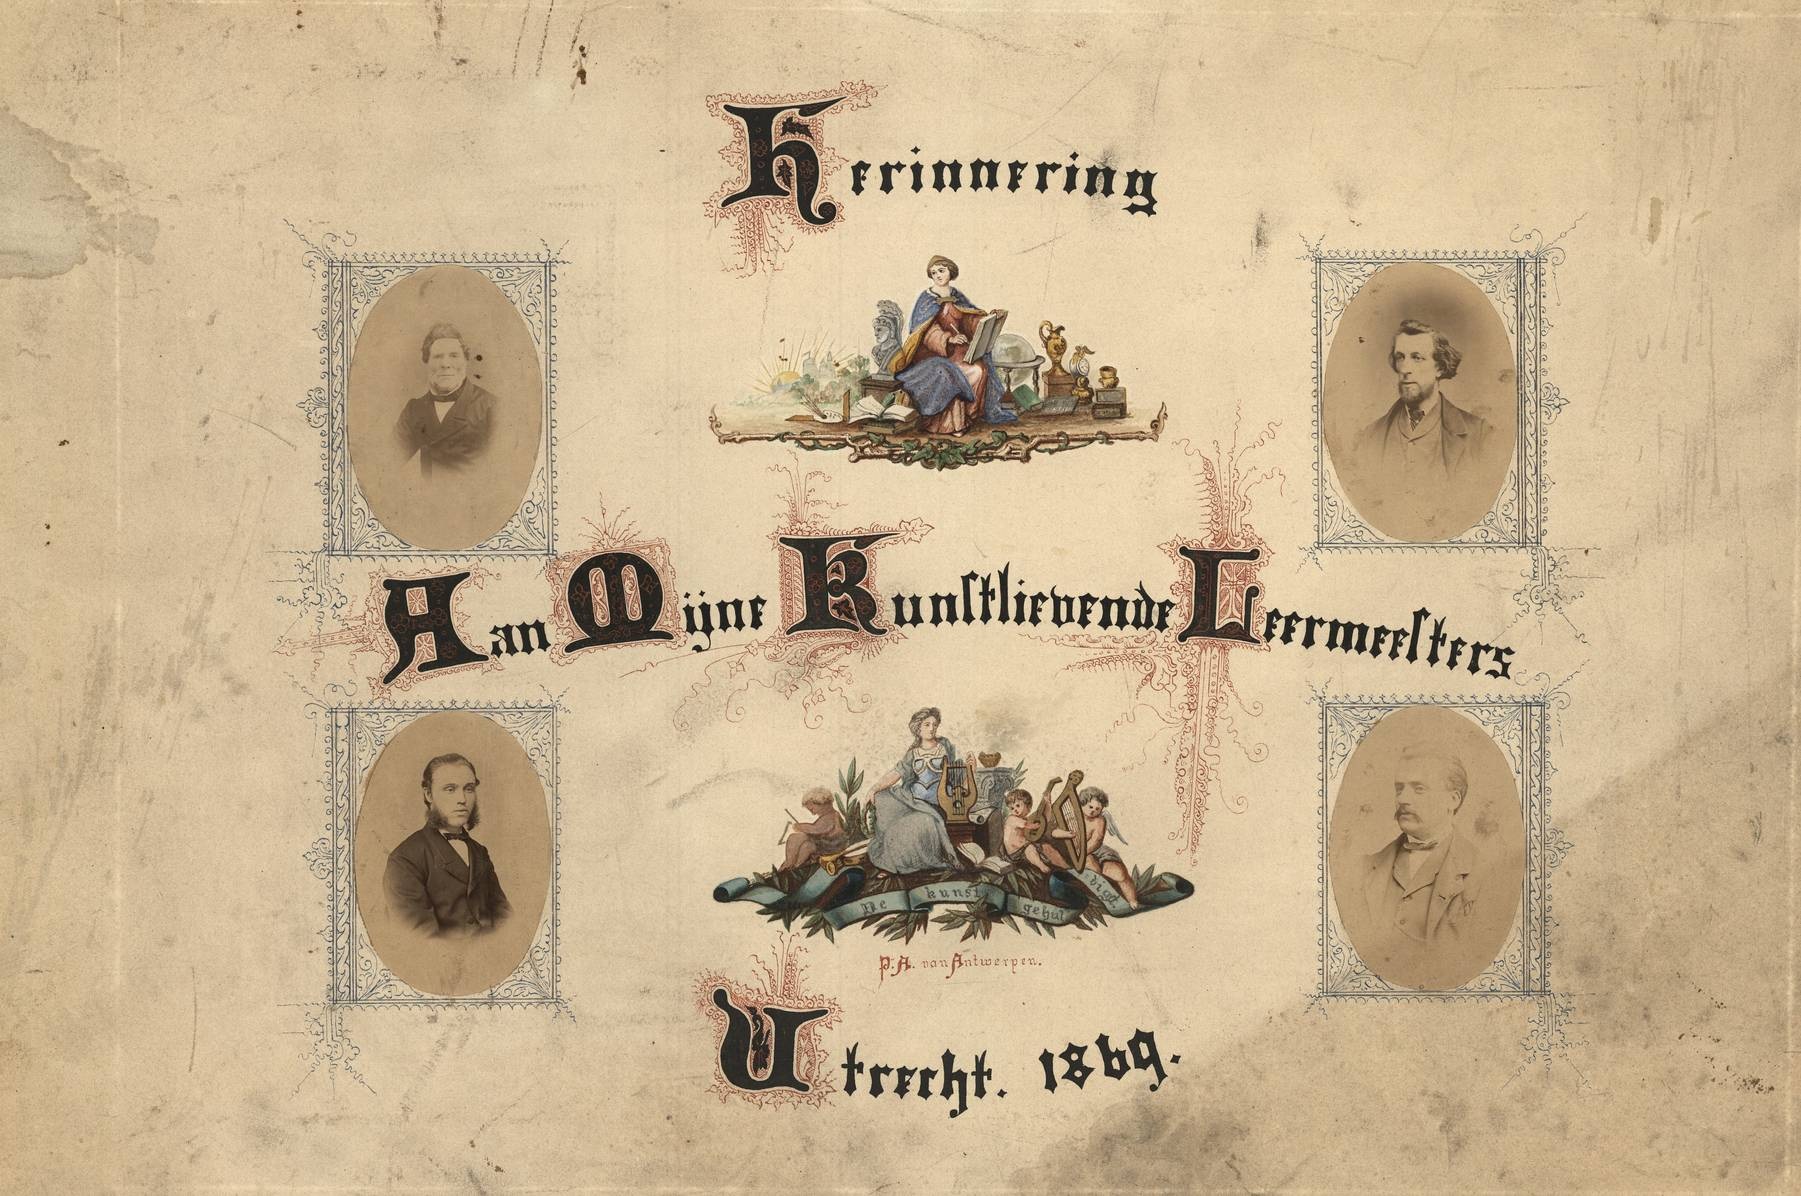 Herinnering
Aan Mijne Kunstlievende Leermeesters
De kunst gehuldigd.
P. A. van Antwerpen.
Utrecht. 1869.